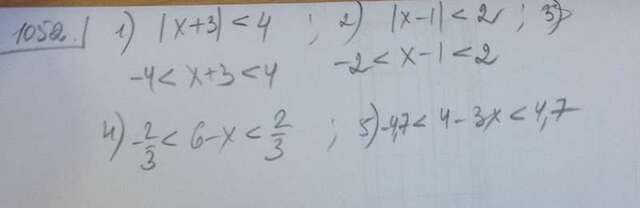 1052. 1) |x+3| < 4 ; 2) |x-1| < 2 ; 3)
-4 < x+3 < 4 -2 < x-1 < 2
4) -2/3 < 6-x < 2/3 ; 5) -4,7 < 4-3x < 4,7